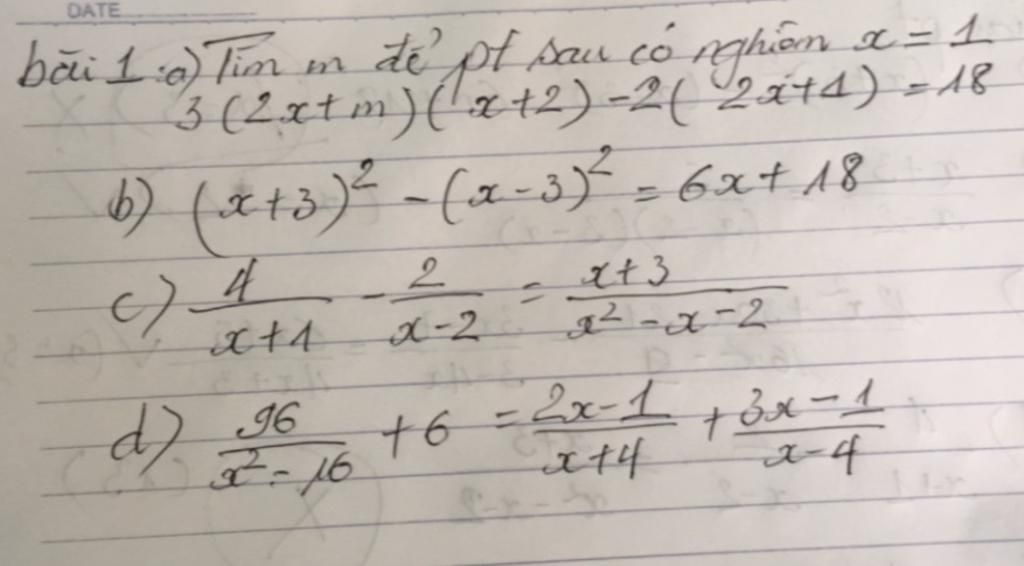 DATE
bài 1: a) Tìm m để pt sau có nghiệm x = 1
3(2x+m)(x+2) - 2(2x+1) = 18
b) (x+3)² - (x-3)² = 6x + 18
c) 4/(x+1) - 2/(x-2) = (x+3)/(x²-x-2)
d) 96/(x²-16) + 6 = (2x-1)/(x+4) + (3x-1)/(x-4)